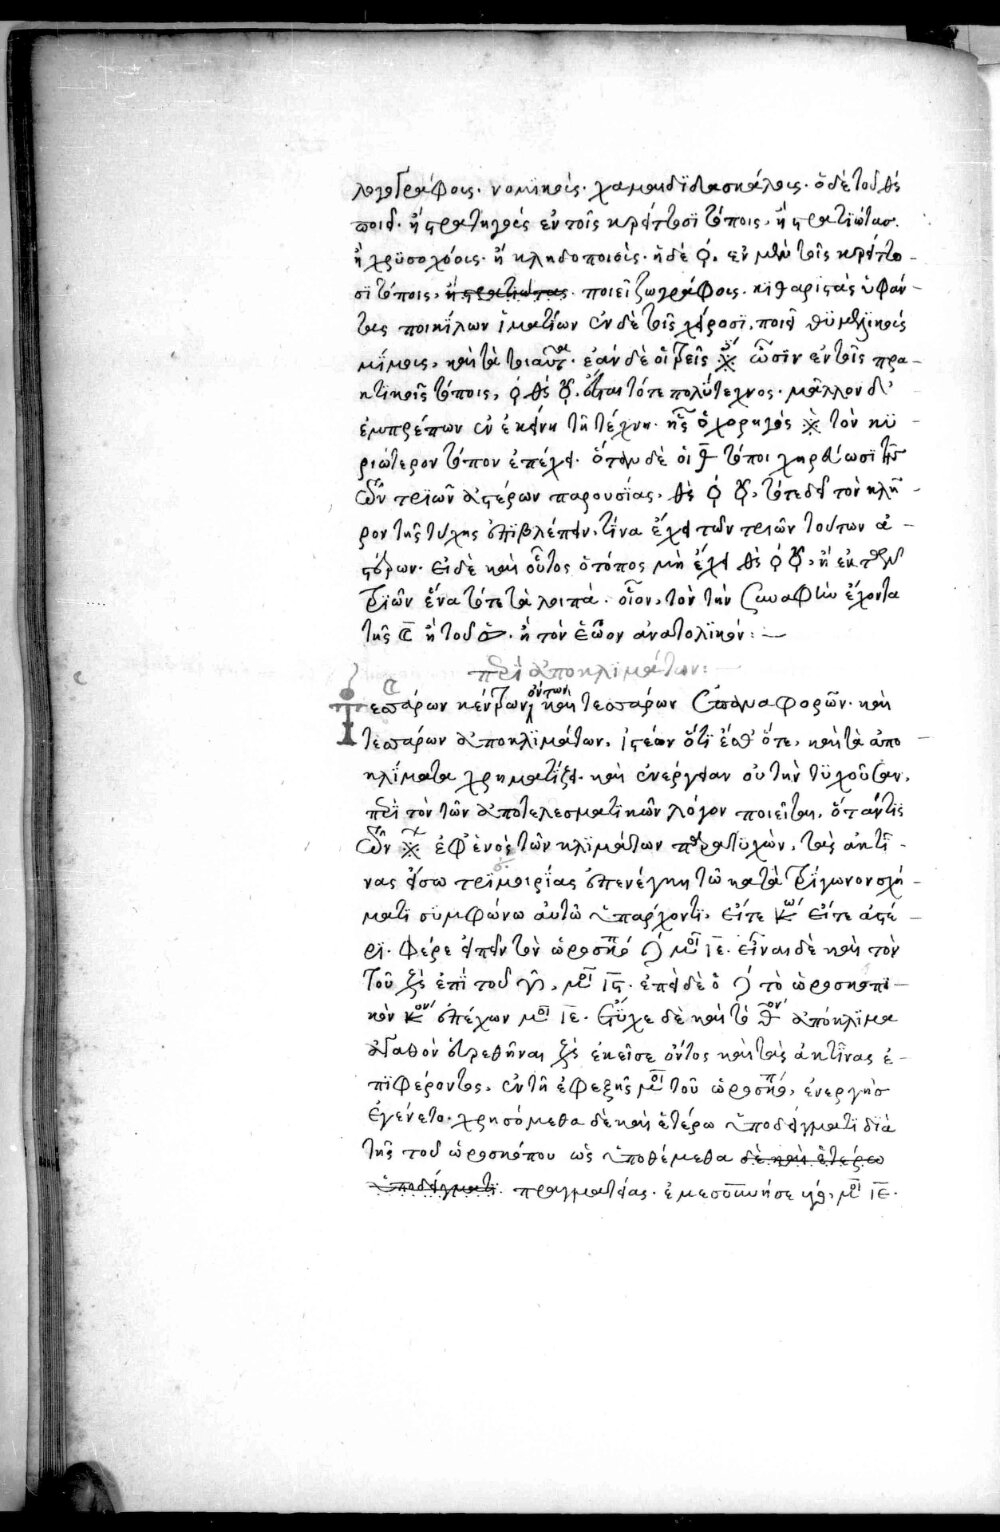 λογογράφοις· νομϊκοὶς· χαμαιδϊδασκάλοις· ὁ δὲ τοῦ
ποιεῖ· ἢ στρατηγοὺς ἐν τοῖς κρείττοσϊ τόποις, ἢ στρατϊώτασ·
ἢ χρϋσοχόοις· ἢ κληδοποιοὶς· ἡ δὲ ♀, ἐν μὲν τοῖς κρείττο-
σϊ τόποις, ἢ στρατϊώτας· ποιεῖ ζωγράφοις· κϊθαρϊστὰς ὑφάν-
τας ποικΐλων ἱματΐων ἐν δὲ τοῖς χείροσϊ, ποιεῖ θϋμελϊκοὺς
μΐμοις, καὶ τὰ τοιαῦτα· ἐὰν δὲ οἱ τρεῖς ὦσϊν ἐν τοῖς πρα-
κτϊκοῖς τόποις, ♀ ☿, ἔσται τότε πολύτεχνος· μᾶλλον δ'
ἐμπρέπων ἐν ἐκείνη τῆ τέχνη· ἧς ὁ χορηγὸς τὸν κϋ-
ριώτερον τόπον ἐπέχει· ὅταν δὲ οἱ γ τόποι χηρεύωσϊ τῆς
τῶν τρϊῶν ἀστέρων παρουσΐας, ♀ ☿, τότε δεῖ τὸν κλῆ-
ρον τῆς τύχης ἐπϊβλέπειν, τίνα ἔχει τῶν τρϊῶν τούτων ἀ-
στέρων· εἰ δὲ καὶ οὗτος ὁ τόπος μὴ ἔχει ♀ ☿, ἢ ἐκ τῶν
τρϊῶν ἕνα τότε τὰ λοιπά· οἷον, τὸν τὴν συναφὴν ἔχοντα
τῆς ☾ ἢ τοῦ· ἢ τὸν ἑῶον ἀνατολϊκόν:—
περὶ ἀποκλϊμάτων:—
Τεσσάρων κέντρων ὄντων καὶ τεσσάρων ἐπαναφορῶν· καὶ
τεσσάρων ἀποκλϊμάτων, ἰστέον ὅτϊ ἔσθ' ὅτε, καὶ τὰ ἀπο
κλΐματα χρηματΐζει· καὶ ἐνέργειαν οὐ τὴν τϋχοῦσαν,
περὶ τὸν τῶν ἀποτελεσματϊκῶν λόγον ποιεῖται, ὅταν τϊς
τῶν ἐφ' ἑνὸς τῶν κλϊμάτων παρατϋχὼν, τὰς ἀκτῖ-
νας εἴσω τρϊμοιρΐας ἐπενέγκη τῶ κατὰ τρΐγωνον σχή-
ματι σϋμφώνω αὐτῶ ὑπάρχοντϊ, εἴτε εἴτε ἀστέ-
ρϊ· φέρε εἰπεῖν τὸν ὡροσκόπον μοῖ ιε· εἶναι δὲ καὶ τὸν
τοῦ ἐπῒ τοῦ, μοῖ ις· ἐπεὶ δὲ ὁ τὸ ὡροσκοπι-
κὸν ἐπέχων μοῖ ιε· ἔτϋχε δὲ καὶ τὸ θον ἀπόκλϊμα
ἀγαθὸν εὑρεθῆναι ἐκεῖσε ὄντος καὶ τὰς ἀκτῖνας ἐ-
πϊφέροντος, ἐν τῆ ἐφεξῆς μοῖ τοῦ ὡροσκόπου, ἐνεργὴσ
ἐγένετο· χρησόμεθα δὲ καὶ ἑτέρω ὑποδείγματι διὰ
τῆς τοῦ ὡροσκόπου ὡς ὑποθέμεθα δὲ καὶ ἑτέρω
ὑποδείγματι· πραγματείας· ἐμεσουράνησε, μοῖ ιε·